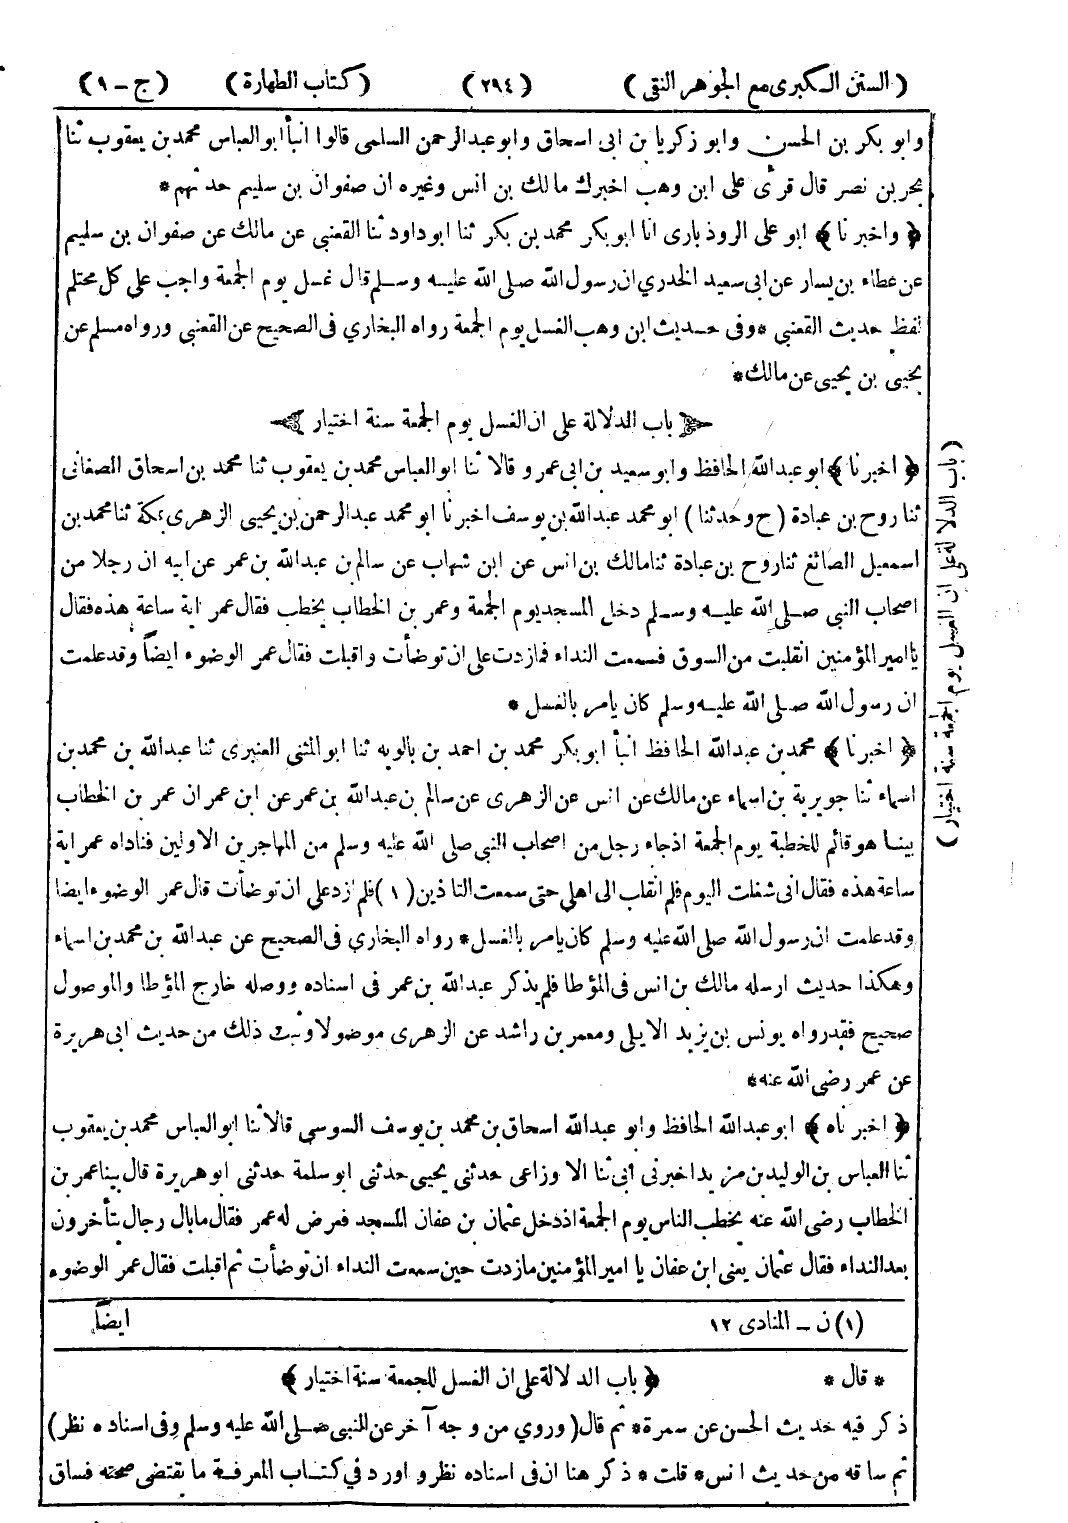 ( السنن الكبرى مع الجوهر النقى ) ( ٢٩٤ ) ( كتاب الطهارة ) ( ج - ١ )
وابو بكر بن الحسن وابو زكريا بن ابى اسحاق وابو عبد الرحمن السلمى قالوا انبأ ابو العباس محمد بن يعقوب ثنا
بحر بن نصر قال قرئ على ابن وهب اخبرك مالك بن انس وغيره ان صفوان بن سليم حدثهم *
﴿ واخبرنا ﴾ ابو على الروذبارى انا ابو بكر محمد بن بكر ثنا ابو داود ثنا القعنبى عن مالك عن صفوان بن سليم
عن عطاء بن يسار عن ابى سعيد الخدري ان رسول الله صلى الله عليه وسلم قال غسل يوم الجمعة واجب على كل محتلم
لفظ حديث القعنبى * وفى حديث ابن وهب الغسل يوم الجمعة رواه البخاري فى الصحيح عن القعنبى ورواه مسلم عن
يحيى بن يحيى عن مالك *
باب الدلالة على ان الغسل يوم الجمعة سنة اختيار
﴿ اخبرنا ﴾ ابو عبد الله الحافظ وابو سعيد بن ابى عمرو قالا ثنا ابو العباس محمد بن يعقوب ثنا محمد بن اسحاق الصغانى
ثنا روح بن عبادة ( ح وحدثنا ) ابو محمد عبد الله بن يوسف اخبرنا ابو محمد عبد الرحمن بن يحيى الزهرى بمكة ثنا محمد بن
اسمعيل الصائغ ثنا روح بن عبادة ثنا مالك بن انس عن ابن شهاب عن سالم بن عبد الله بن عمر عن ابيه ان رجلا من
اصحاب النبى صلى الله عليه وسلم دخل المسجد يوم الجمعة وعمر بن الخطاب يخطب فقال عمر اية ساعة هذه فقال
يا امير المؤمنين انقلبت من السوق فسمعت النداء فما زدت على ان توضأت واقبلت فقال عمر الوضوء ايضاً وقد علمت
ان رسول الله صلى الله عليه وسلم كان يامر بالغسل *
﴿ اخبرنا ﴾ محمد بن عبد الله الحافظ انبأ ابو بكر محمد بن احمد بن بالويه ثنا ابو المثنى العنبرى ثنا عبد الله بن محمد بن
اسماء ثنا جويرية بن اسماء عن مالك عن انس عن الزهرى عن سالم بن عبد الله بن عمر عن ابن عمر ان عمر بن الخطاب
بينا هو قائم للخطبة يوم الجمعة اذ جاء رجل من اصحاب النبى صلى الله عليه وسلم من المهاجرين الاولين فناداه عمر اية
ساعة هذه فقال انى شغلت اليوم فلم انقلب الى اهلي حتى سمعت التاذين ( ١ ) فلم ازد على ان توضأت قال عمر الوضوء ايضا
وقد علمت ان رسول الله صلى الله عليه وسلم كان يامر بالغسل * رواه البخاري فى الصحيح عن عبد الله بن محمد بن اسماء
وهكذا حديث ارسله مالك بن انس فى المؤطا فلم يذكر عبد الله بن عمر فى اسناده ووصله خارج المؤطا والموصول
صحيح فقد رواه يونس بن يزيد الايلى ومعمر بن راشد عن الزهرى موصولا وثبت ذلك من حديث ابى هريرة
عن عمر رضى الله عنه *
﴿ اخبرناه ﴾ ابو عبد الله الحافظ وابو عبد الله اسحاق بن محمد بن يوسف السوسى قالا ثنا ابو العباس محمد بن يعقوب
ثنا العباس بن الوليد بن مزيد اخبرنى ابى ثنا الاوزاعى حدثنى يحيى حدثنى ابو سلمة حدثنى ابو هريرة قال بينا عمر بن
الخطاب رضى الله عنه يخطب الناس يوم الجمعة اذ دخل عثمان بن عفان المسجد فعرض له عمر فقال ما بال رجال يتأخرون
بعد النداء فقال عثمان يعنى ابن عفان يا امير المؤمنين ما زدت حين سمعت النداء ان توضأت ثم اقبلت فقال عمر الوضوء
ايضاً
( باب الدلالة على ان الغسل يوم الجمعة سنة اختيار )
(١) ن - المنادى ١٢
* قال * ﴿ باب الدلالة على ان الغسل للجمعة سنة اختيار ﴾
ذكر فيه حديث الحسن عن سمرة * ثم قال ( وروي من وجه آخر عن النبى صلى الله عليه وسلم وفى اسناده نظر )
ثم ساقه من حديث انس * قلت * ذكر هنا ان فى اسناده نظر واورد في كتاب المعرفة ما يقتضى صحته فساق